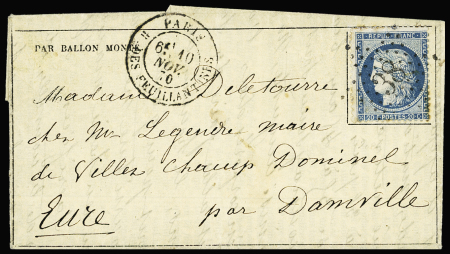 PAR BALLON MONTÉ
PARIS
R. DES FEUILLANTINES
6E 10
NOV.
70
REPUB. FRANC.
38
20 C POSTES 20 C
Madame Deletourre
chez Mr Legendre maire
de Villez Champ Dominel
Eure par Damville